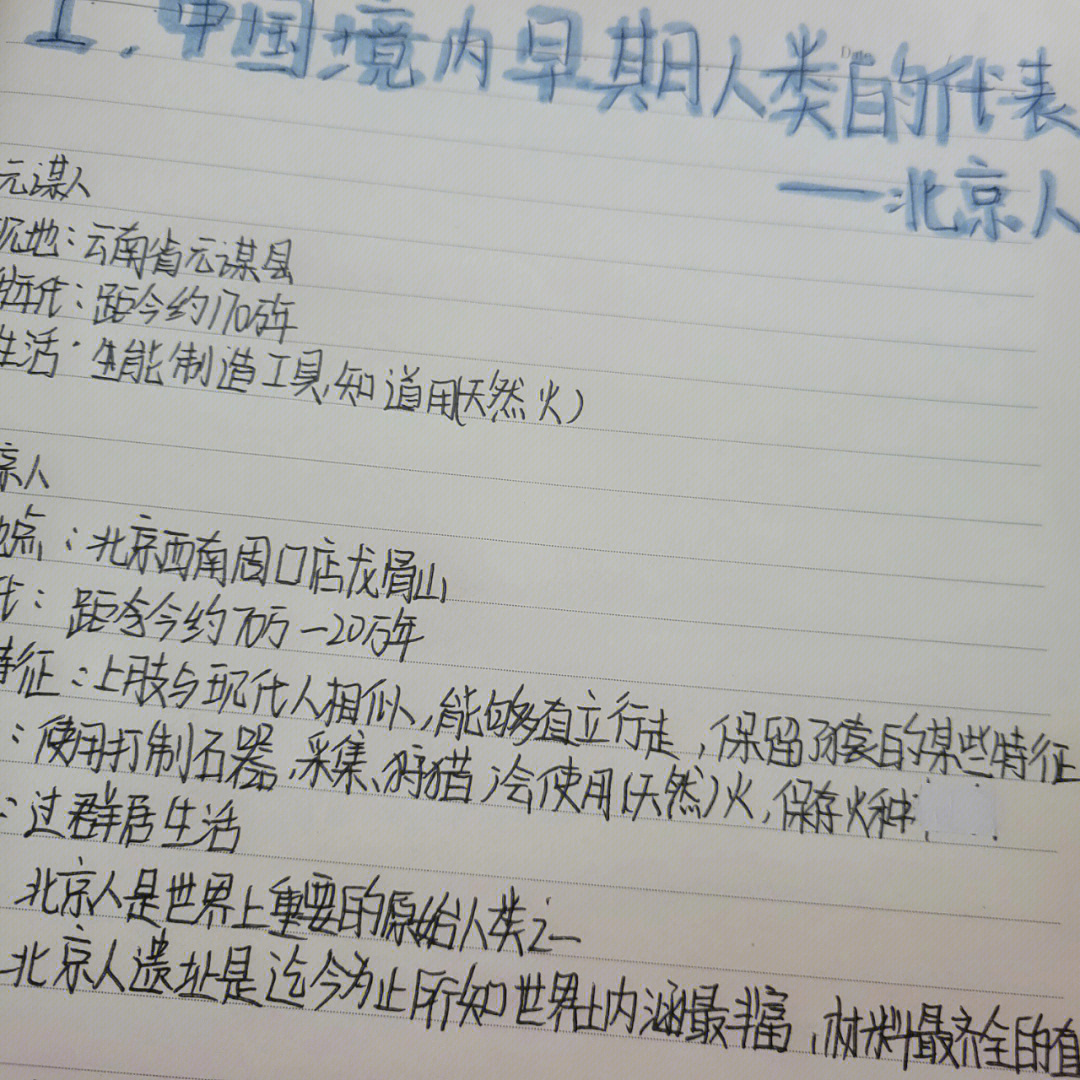 1.中国境内早期人类的代表
——北京人
元谋人
现地:云南省元谋县
年代:距今约170万年
生活:能制造工具,知道用(天然火)
京人
地点:北京西南周口店龙骨山
代:距今约70万—20万年
特征:上肢与现代人相似,能够直立行走,保留了猿的某些特征
:使用打制石器,采集、狩猎,会使用(天然)火,保存火种.
:过群居生活
北京人是世界上重要的原始人类之一
北京人遗址是迄今为止所知世界上内涵最丰富,材料最齐全的直